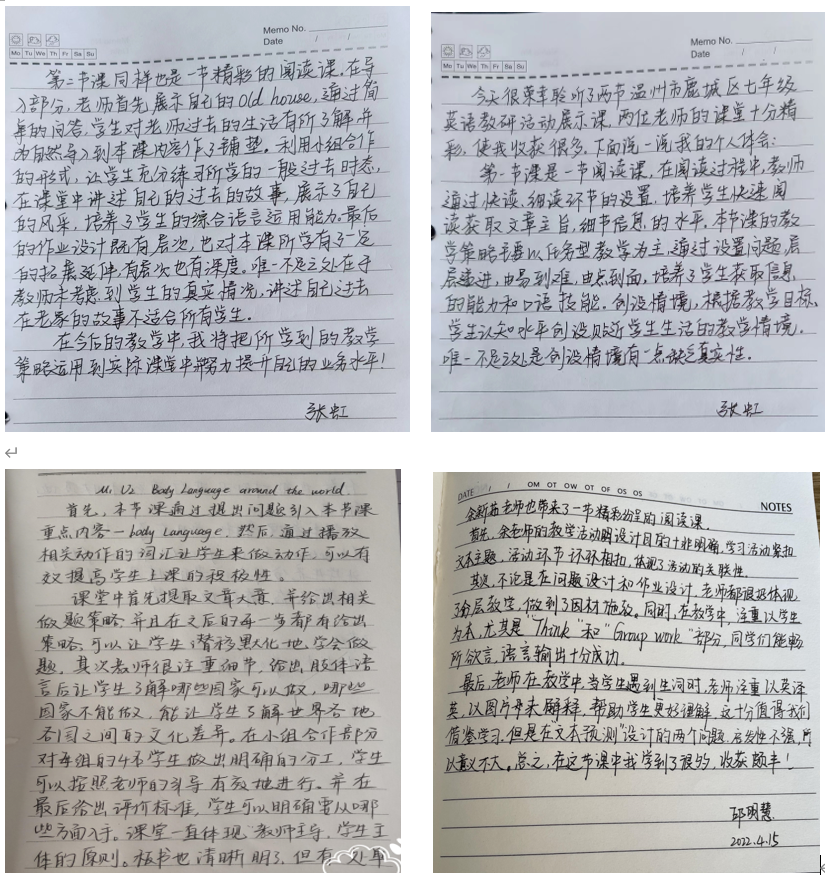 Memo No.
Date / /
Mo Tu We Th Fr Sa Su
第二节课同样也是一节精彩的阅读课,在导
入部分,老师首先展示自己的old house,通过简
单的问答,学生对老师过去的生活有所了解,并
为自然导入到本课内容作了铺垫。利用小组合作
的形式,让学生充分练习所学的一般过去时态,
在课堂中讲述自己的过去的故事,展示了自己
的风采,培养了学生的综合语言运用能力。最后
的作业设计既有层次,也对本课所学有了一定
的拓展延伸,有层次也有深度。唯一不足之处在于
教师未考虑到学生的真实情况,讲述自己过去
在老家的故事不适合所有学生。
在今后的教学中,我将把所学到的教学
策略运用到实际课堂中并努力提升自己的业务水平!
张虹
Memo No.
Date / /
Mo Tu We Th Fr Sa Su
今天很荣幸聆听了两节温州市鹿城区七年级
英语教研活动展示课,两位老师的课堂十分精
彩,使我收获很多,下面说一说我的个人体会:
第一节课是一节阅读课,在阅读过程中,教师
通过快读、细读环节的设置,培养学生快速阅
读获取文章主旨,细节信息的水平。本节课的教
学策略主要以任务型教学为主,通过设置问题,层
层递进,由易到难,由点到面,培养了学生获取信息
的能力和口语技能。创设情境,根据教学目标、
学生认知水平创设贴近学生生活的教学情境。
唯一不足之处是创设情境有一点缺乏真实性。
张虹
M1 U2 Body Language around the world.
首先,本节课通过提出问题引入本节课
重点内容—body Language,然后,通过播放
相关动作的词汇让学生来做动作,可以有
效提高学生上课的积极性。
课堂中首先提取文章大意,并给出相关
做题策略,并且在之后的每一步都有给出
策略,可以让学生潜移默化地学会做
题,其次教师很注重细节,给出肢体语
言后让学生了解哪些国家可以做,哪些
国家不能做,能让学生了解世界各地
各国之间的文化差异。在小组合作部分
对每组的4名学生做出明确的分工,学生
可以按照老师的引导有效地进行。并在
最后给出评价标准,学生可以明确要从哪
些方面入手。课堂一直体现教师主导,学生主
体的原则。板书也清晰明了,但有一处单
DATE / / OM OT OW OT OF OS OS
NOTES
老师也带来了一节精彩纷呈的阅读课。
首先,余老师的教学活动明设计目的十非明确,学习活动紧扣
文本主题,活动环节环环相扣,体现了活动的关联性。
其次,不论是在问题设计和作业设计,老师都很好体现
了分层教学,做到了因材施教。同时,在教学中,注重以学生
为本,尤其是"Think"和"Group work"部分,同学们能畅
所欲言,语言输出十分成功。
最后,老师在教学中,当学生遇到生词时,老师注重以英译
英,以图片来解释,帮助学生更好理解,这十分值得我们
借鉴学习,但是在文本预测设计的两个问题,启发性不强,所
以意义不大。总之,在这节课中我学到了很多,收获颇丰!
邱明慧
2022.4.15